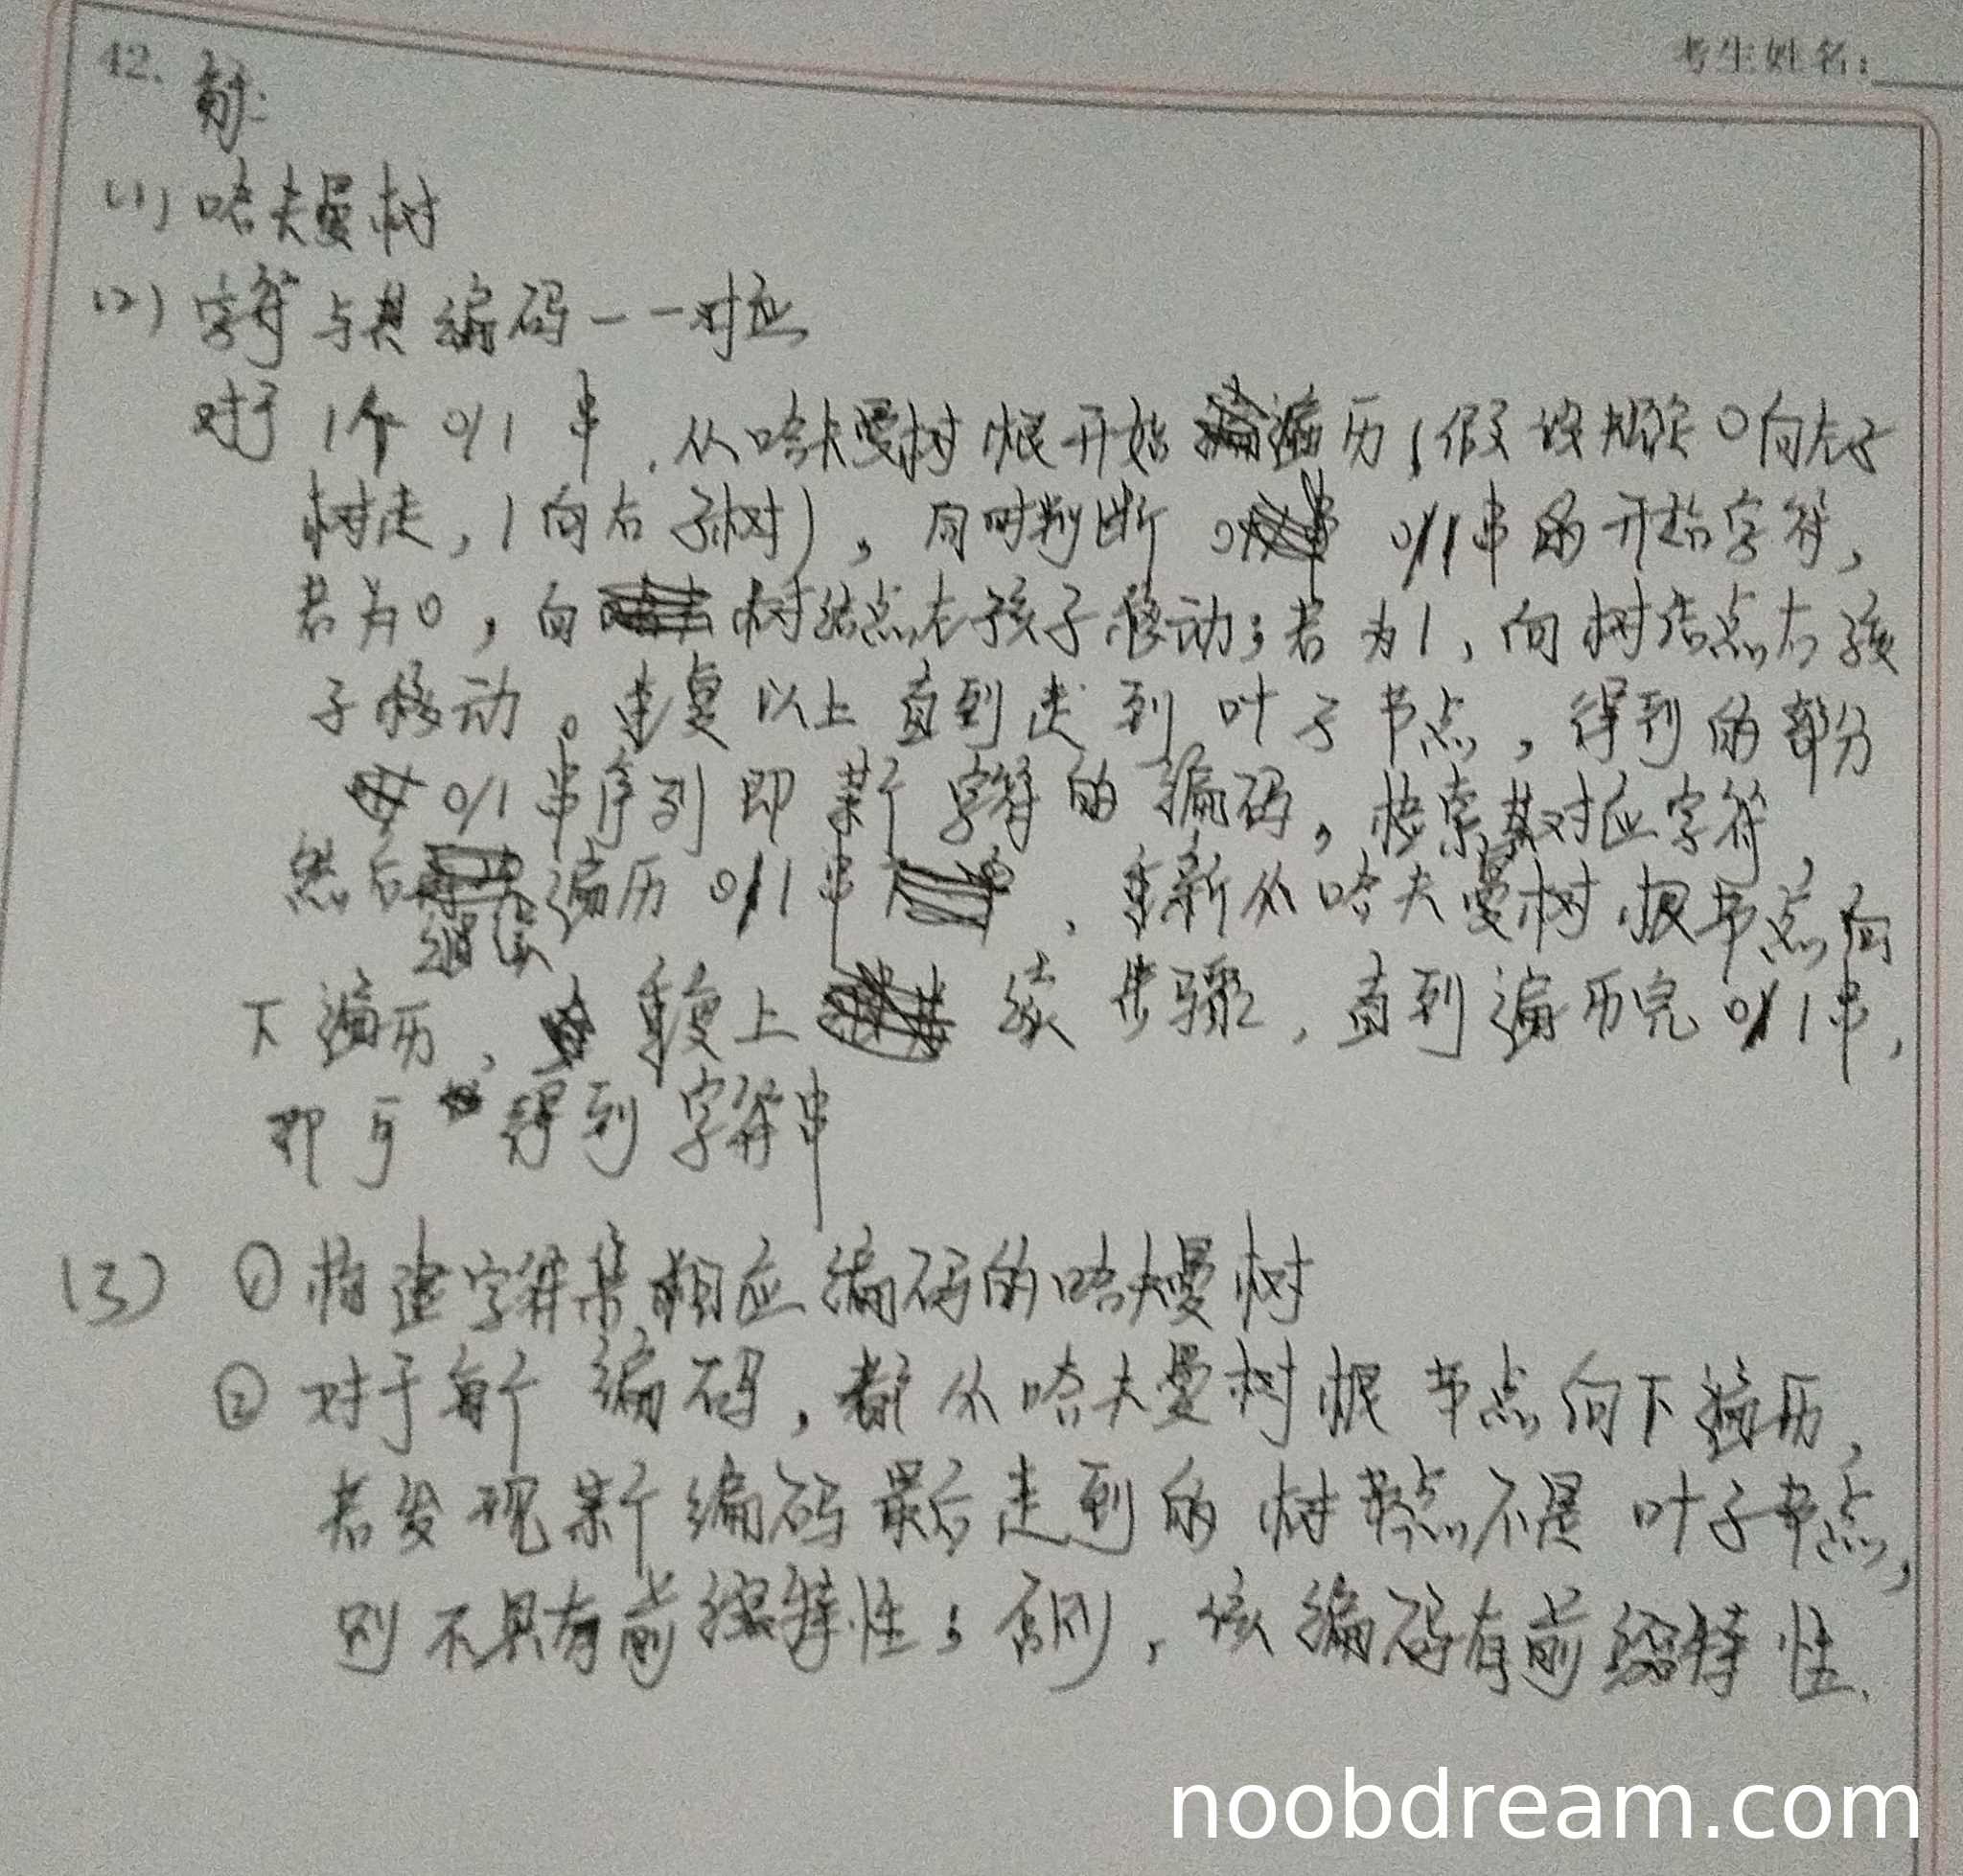 考生姓名：
42. 解:
(1) 哈夫曼树
(2) 字符与其编码一一对应
对于1个 0/1 串，从哈夫曼树根开始遍历(假设规定0向左子
树走，1向右子树)，同时判断 0/1串的开始字符，
若为0，向树结点左孩子移动；若为1，向树结点右孩
子移动。重复以上直到走到叶子节点，得到的部分
0/1串序列即某个字符的编码，检索其对应字符，
然后继续遍历0/1串，重新从哈夫曼树根节点向
下遍历，重复上续步骤，直到遍历完0/1串，
即可得到字符串
(3) ① 构建字符集相应编码的哈夫曼树
② 对于每个编码，都从哈夫曼树根节点向下遍历，
若发现某个编码最后走到的树节点不是叶子节点，
则不具有前缀特性；否则，该编码有前缀特性.
noobdream.com